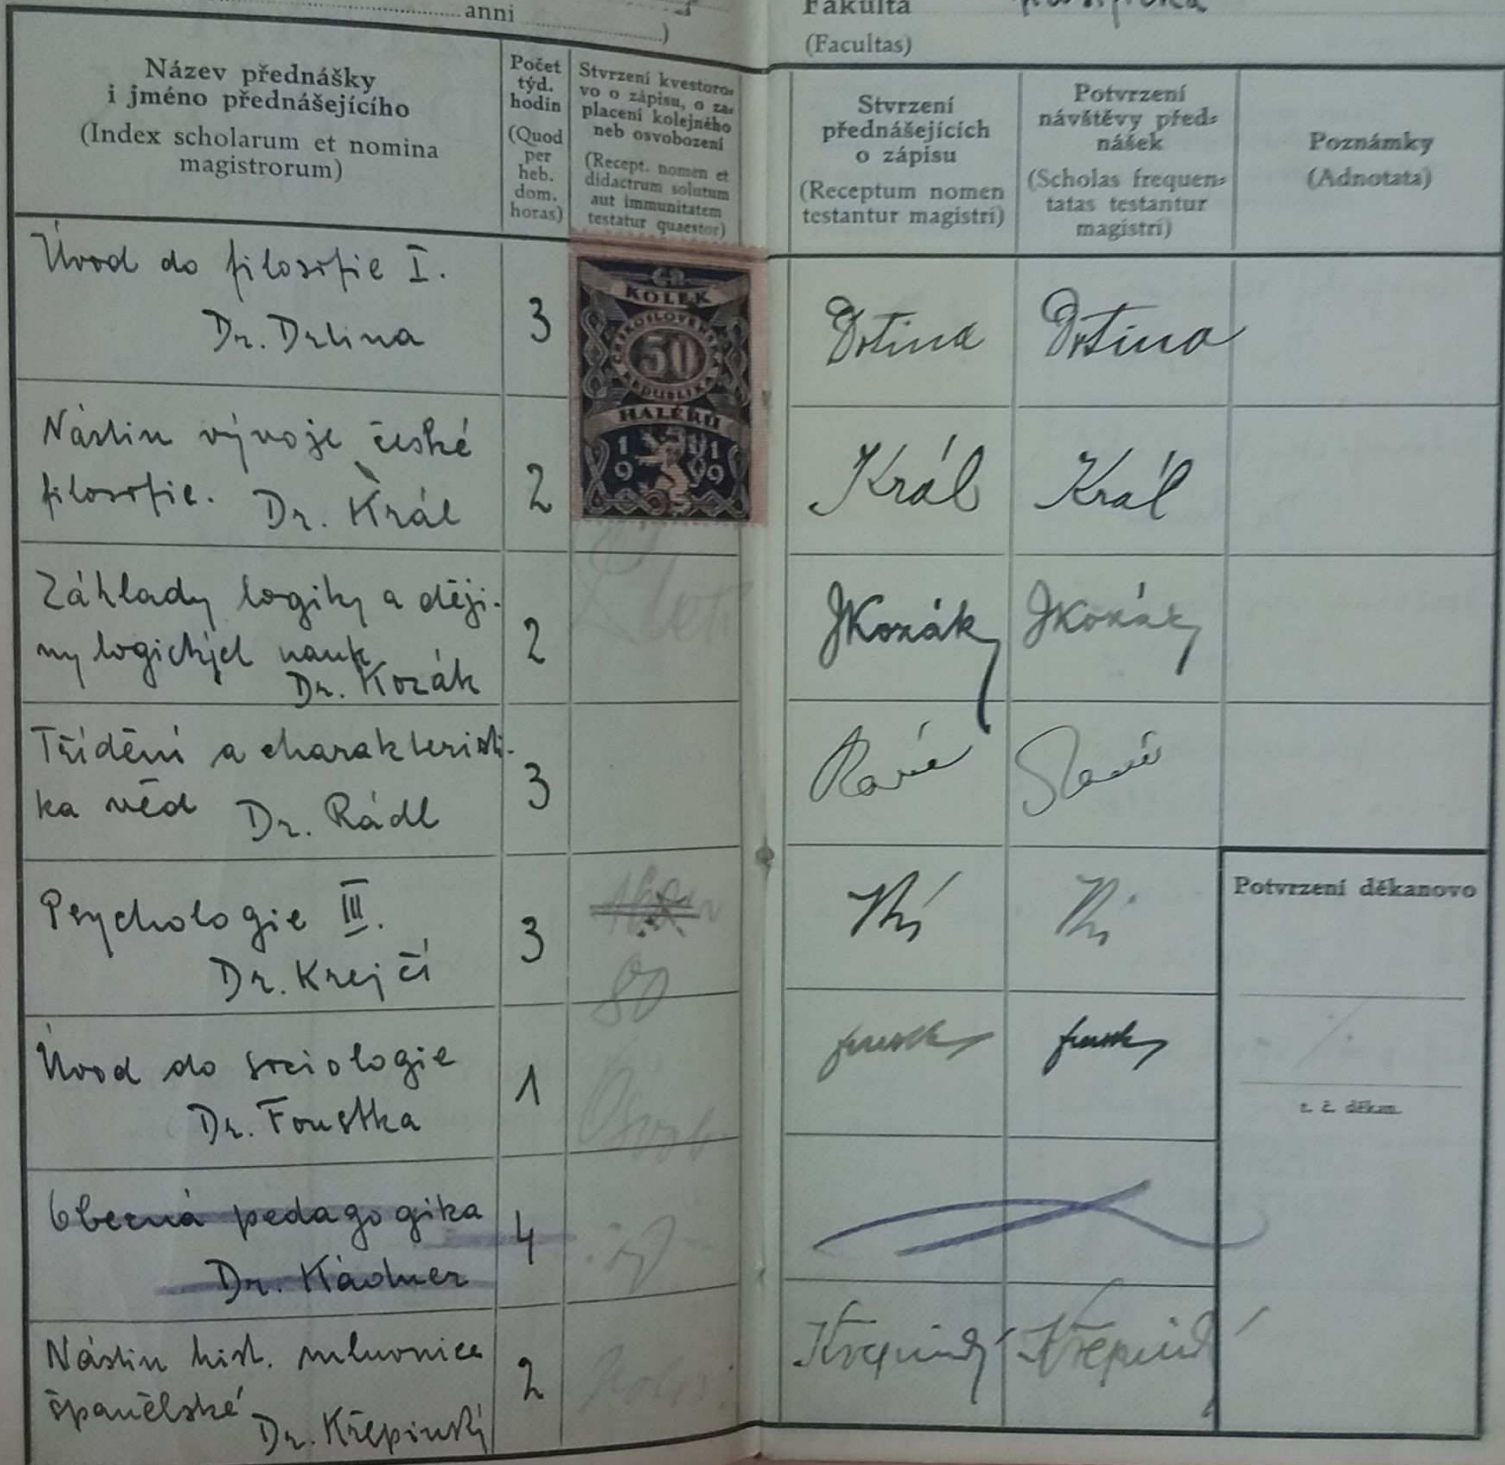 anni )
Fakulta
(Facultas)
Název přednášky
i jméno přednášejícího
(Index scholarum et nomina
magistrorum)
Počet
týd.
hodin
(Quod
per
heb.
dom.
horas)
Stvrzení kvestoro-
vo o zápisu, o za-
placení kolejného
neb osvobození
(Recept. nomen et
didactrum solutum
aut immunitatem
testatur quaestor)
Stvrzení
přednášejících
o zápisu
(Receptum nomen
testantur magistri)
Potvrzení
návštěvy před-
nášek
(Scholas frequen-
tatas testantur
magistri)
Poznámky
(Adnotata)
Úvod do filosofie I.
Dr. Drtina
3
KOLEK
ČESKOSLOVENSKÁ
50
REPUBLIKA
HALÉŘŮ
1919 1919
Drtina
Drtina
Nástin vývoje české
filosofie. Dr. Král
2
Král
Král
Základy logiky a ději-
ny logických nauk
Dr. Kozák
2
JKozák
JKozák
Třídění a charakteristi-
ka věd Dr. Rádl
3
Psychologie III.
Dr. Krejčí
3
80
Potvrzení děkanovo
Úvod do sociologie
Dr. Foustka
1
t. č. děkan.
Obecná pedagogika
Dr. Kádner
4
Nástin hist. mluvnice
španělské
Dr. Křepinský
2
Křepinský
Křepinský